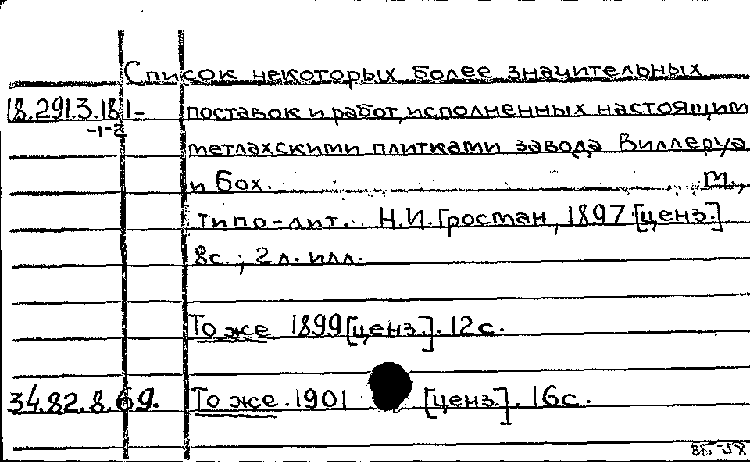 Список некоторых более значительных
18.2913.181- поставок и работ, исполненных настоящим
-1-2
метлахскими плитками завода Виллеруа
и Бох. М.,
типо-лит. Н.И. Гросман, 1897 [ценз.]
8с.; 2 л. илл.
То же 1899 [ценз.]. 12 с.
34.82.8.69. То же. 1901 [ценз.]. 16с.